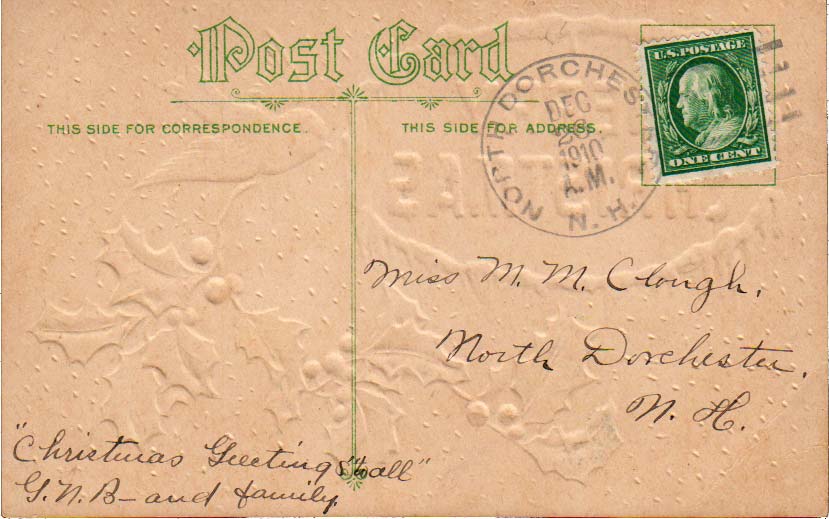 Post Card
THIS SIDE FOR CORRESPONDENCE.
THIS SIDE FOR ADDRESS.
NORTH DORCHESTER
DEC
1910
A.M.
N.H.
U.S. POSTAGE
ONE CENT
Miss M. M. Clough.
North Dorchester.
N. H.
"Christmas Greetings to all"
G.N.B— and family.